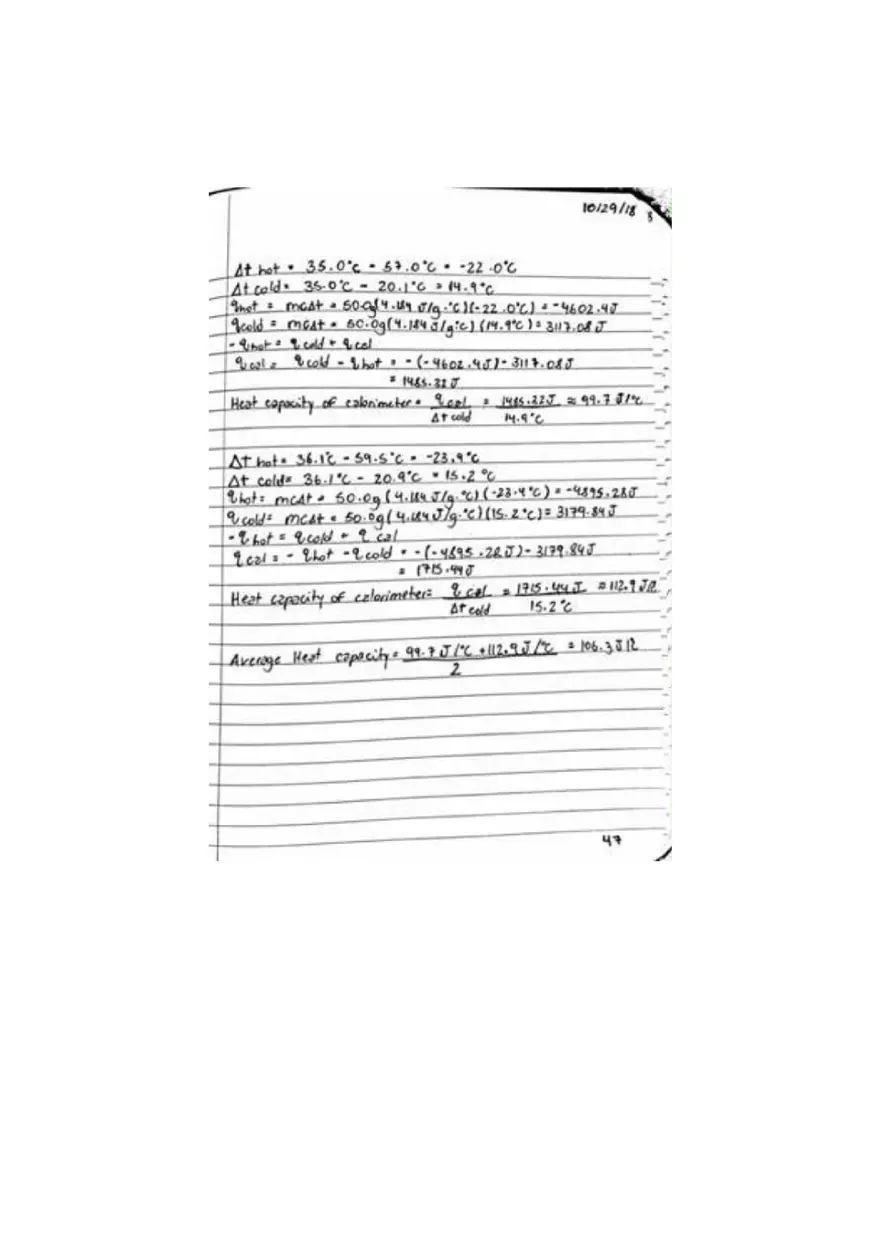 10/29/18 8
Δt hot = 35.0°C - 57.0°C = -22.0°C
Δt cold = 35.0°C - 20.1°C = 14.9°C
qhot = mcΔt = 50.0g(4.184 J/g.°C)(-22.0°C) = -4602.4J
qcold = mcΔt = 50.0g(4.184J/g.°C)(14.9°C) = 3117.08J
- qhot = qcold + qcal
qcal = qcold - qhot = -(-4602.4J) - 3117.08J
= 1485.32J
Heat capacity of calorimeter = qcal / Δt cold = 1485.32J / 14.9°C ≈ 99.7 J/°C
Δt hot = 36.1°C - 59.5°C = -23.4°C
Δt cold = 36.1°C - 20.9°C = 15.2°C
qhot = mcΔt = 50.0g(4.184J/g.°C)(-23.4°C) = -4895.28J
qcold = mcΔt = 50.0g(4.184J/g.°C)(15.2°C) = 3179.84J
- qhot = qcold + qcal
qcal = - qhot - qcold = -(-4895.28J) - 3179.84J
= 1715.44J
Heat capacity of calorimeter = qcal / Δt cold = 1715.44J / 15.2°C ≈ 112.9 J/°C
Average Heat capacity = 99.7J/°C + 112.9J/°C / 2 = 106.3J/°C
47